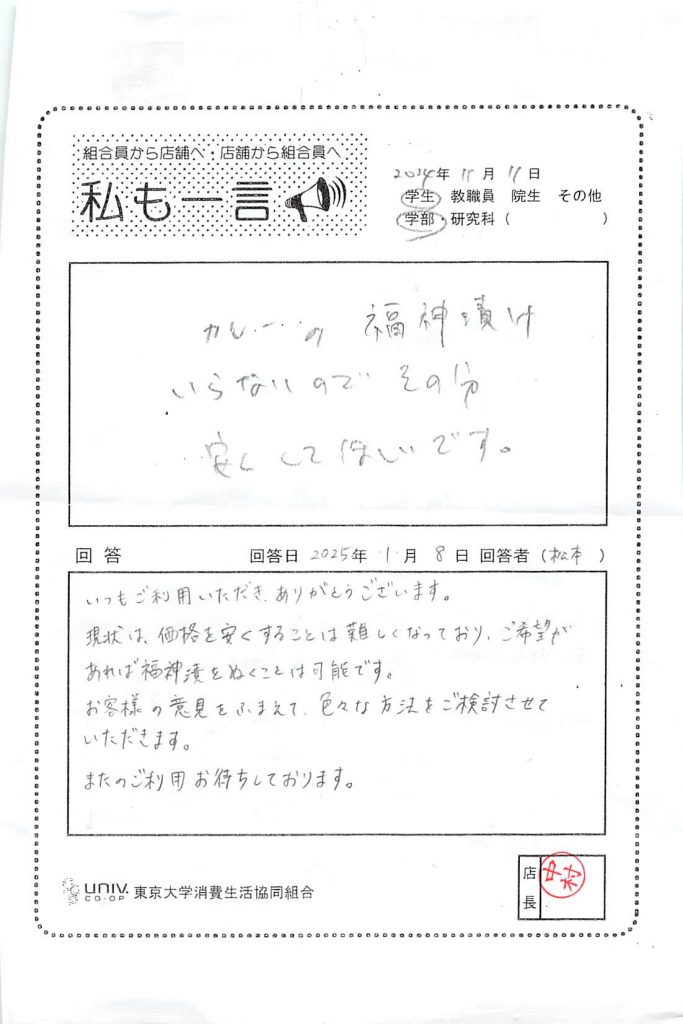 組合員から店舗へ・店舗から組合員へ
私も一言
2024年11月11日
学生 教職員 院生 その他
学部・研究科( )
カレーの 福神漬け
いらないので その分
安くしてほしいです。
回答 回答日 2025年 1月 8日 回答者(松本 )
いつもご利用いただき、ありがとうございます。
現状は、価格を安くすることは難しくなっており、ご希望が
あれば福神漬をぬくことは可能です。
お客様の意見をふまえて、色々な方法をご検討させて
いただきます。
またのご利用お待ちしております。
UNIV. CO-OP 東京大学消費生活協同組合
店長 中村